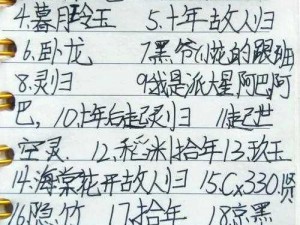 4.暮月玲玉 5.十年故人归
6.卧龙 7黑爷小花的跟班
8.灵归 9我是派大星阿巴阿
巴, 10.十年后起灵归 11起世
空灵. 12.稻米拾年13.玖玉
14.海棠花开故人归 15.Cx330.贤
16.隐竹 17.拾年 18.京黑